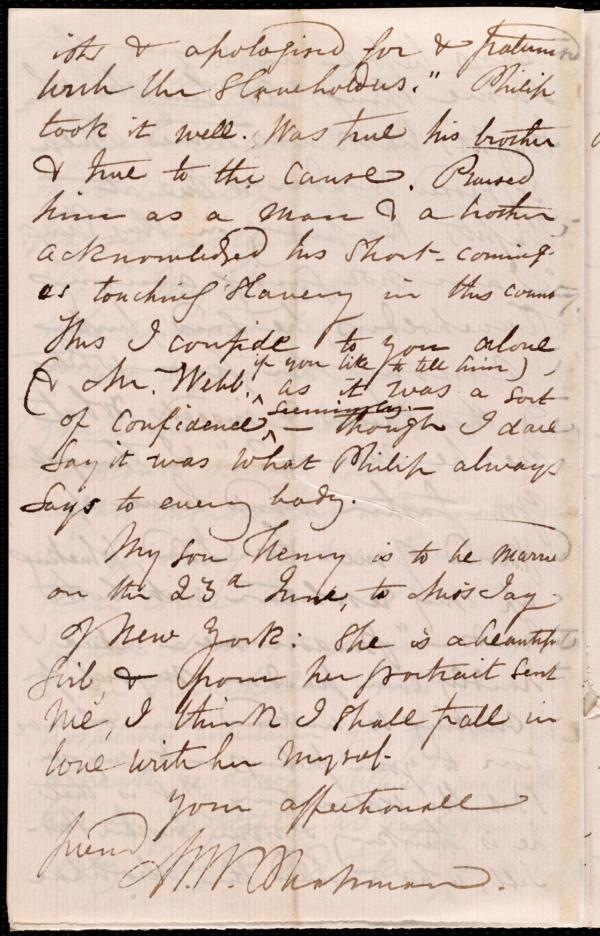 ists & apologised for & fraternised
with the Slaveholders." Philip
took it well. Was true his brother
& true to the cause. Praised
him as a man & a brother,
acknowledged his short-coming-
es touching Slavery in this country.
This I confide to you alone,
(& Mr. Webb, if you like to tell him)
as it was a sort
of confidence, seemingly — though I dare
say it was what Philip always
says to every body.
My son Henry is to be married
on the 23d June, to Miss Jay
of New York: She is a beautiful
girl, & from her portrait sent
me, I think I shall fall in
love with her myself.
Your affectionate
friend
M. W. Chapman.